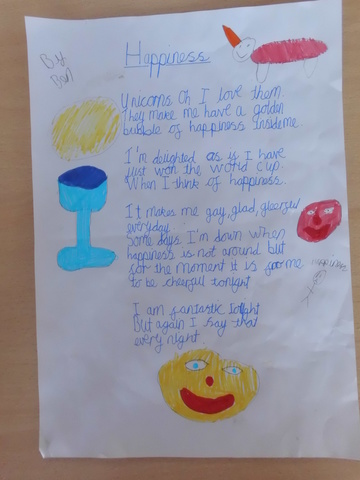 By
Happiness
Ynicorns Oh I love them.
They make me have a golden
bubble of happiness inside me.
I'm delighted as if I have
just won the world cup.
When I think of happiness.
It makes me gay, glad, gleerful
everyday.
Some days I'm down when
happiness is not around but
for the moment it is for me
to be cheerful tonight
I am fantastic tonight
But again I say that
every night.
Happiness